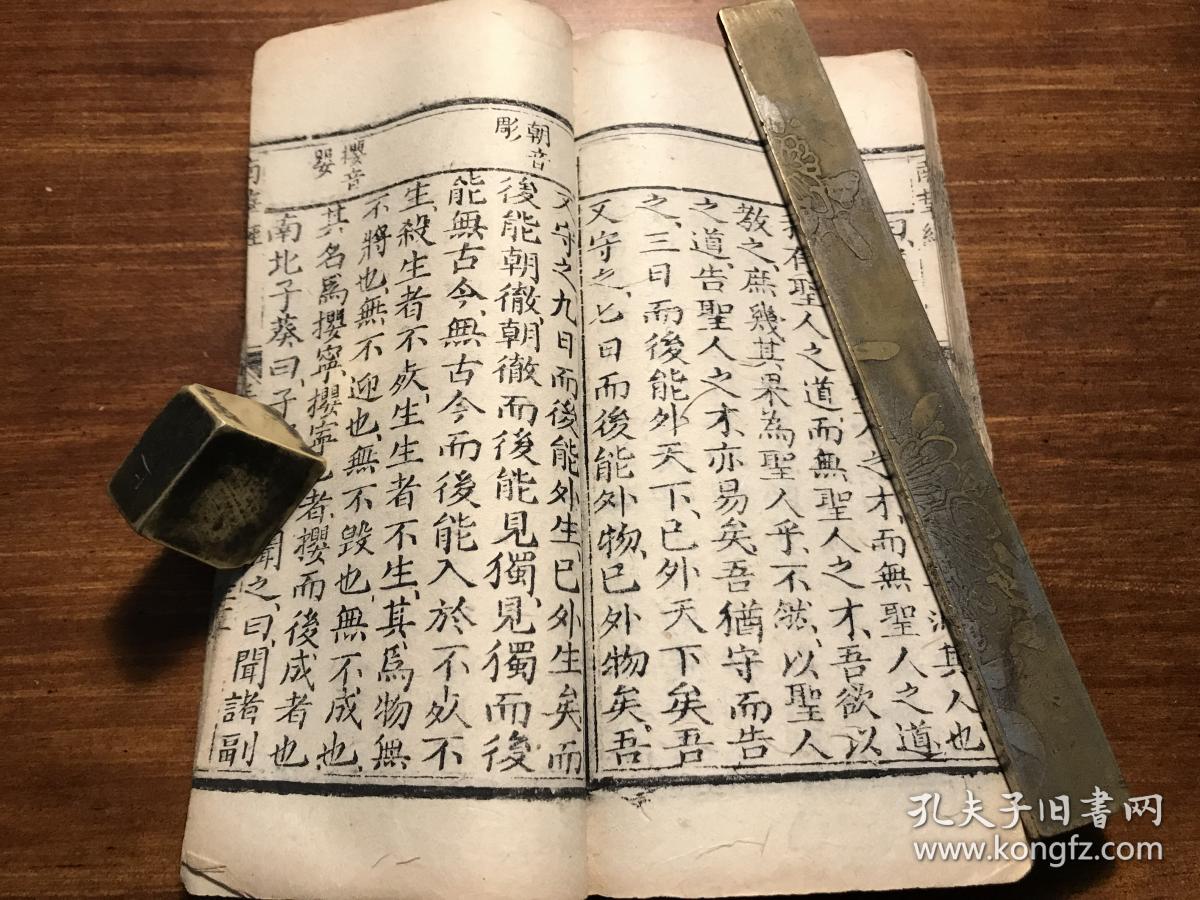 其人也
之才而無聖人之道
有聖人之道而無聖人之才、吾欲以
敎之、庶幾其果為聖人乎、不然、以聖人
之道、告聖人之才、亦易矣、吾猶守而告
之、三日而後能外天下、已外天下矣、吾
又守之、七日而後能外物、已外物矣、吾
朝音
彫
又守之九日而後能外生、已外生矣、而
後能朝徹、朝徹而後能見獨、見獨而後
能無古今、無古今而後能入於不死不
生、殺生者不死、生生者不生、其爲物無
不將也、無不迎也、無不毀也、無不成也、
攖音
嬰
其名爲攖寧、攖寧者、攖而後成者也
南北子葵曰、子聞之、曰、聞諸副
南華經
孔夫子旧书网
www.kongfz.com